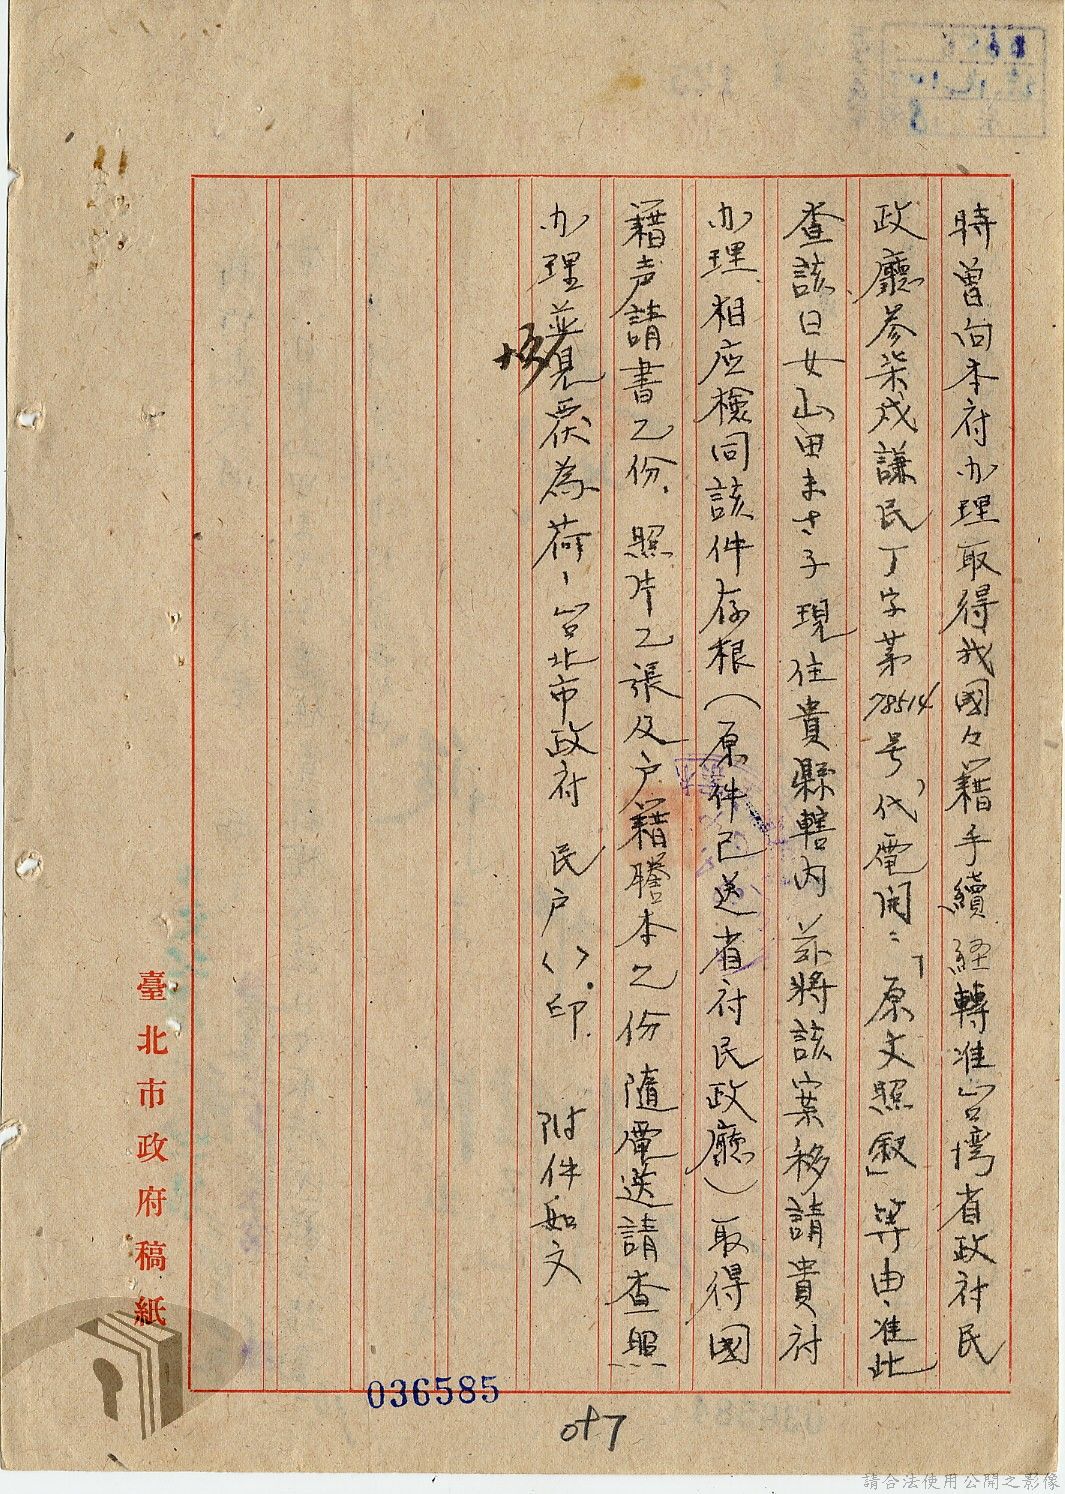 時曾向本府办理取得我國々籍手續経轉准台湾省政府民
政廳參柒戌謙民丁字第78514号代電開：「原文照敘」等由，准此
查該日女山田まさ子現住貴縣轄內茲將該案移請貴府
办理相应檢同該件存根（原件已送省府民政廳）取得國
籍声請書乙份、照片乙張及户籍謄本乙份隨電送請查照
办理並見覆為荷、台北市政府民户〈〉印附件如文
臺北市政府稿紙
036585
017
請合法使用公開之影像